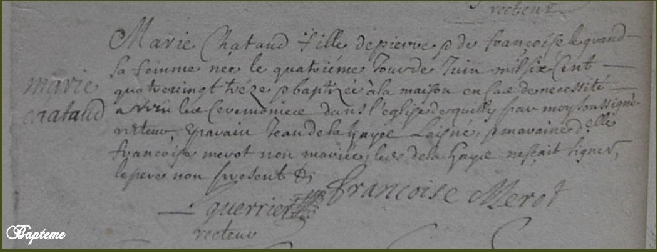 recteur
Marie Chataud fille de pierre & de francoise le grand
sa femme nee le quatriéme Jour de Juin mil six Cent
marie
chataud
quatrevingt tréze & baptizée à la maison en Cas de necessité
a les Ceremonies dans l'eglise de quilly par moy soussigné
recteur, parain Jean de la haye & maraine d'elle
francoise merot non mariée, le dit de la haye ne scait signer,
le pere non present &c
francoise Merot
Guerrier
recteur
Bapteme